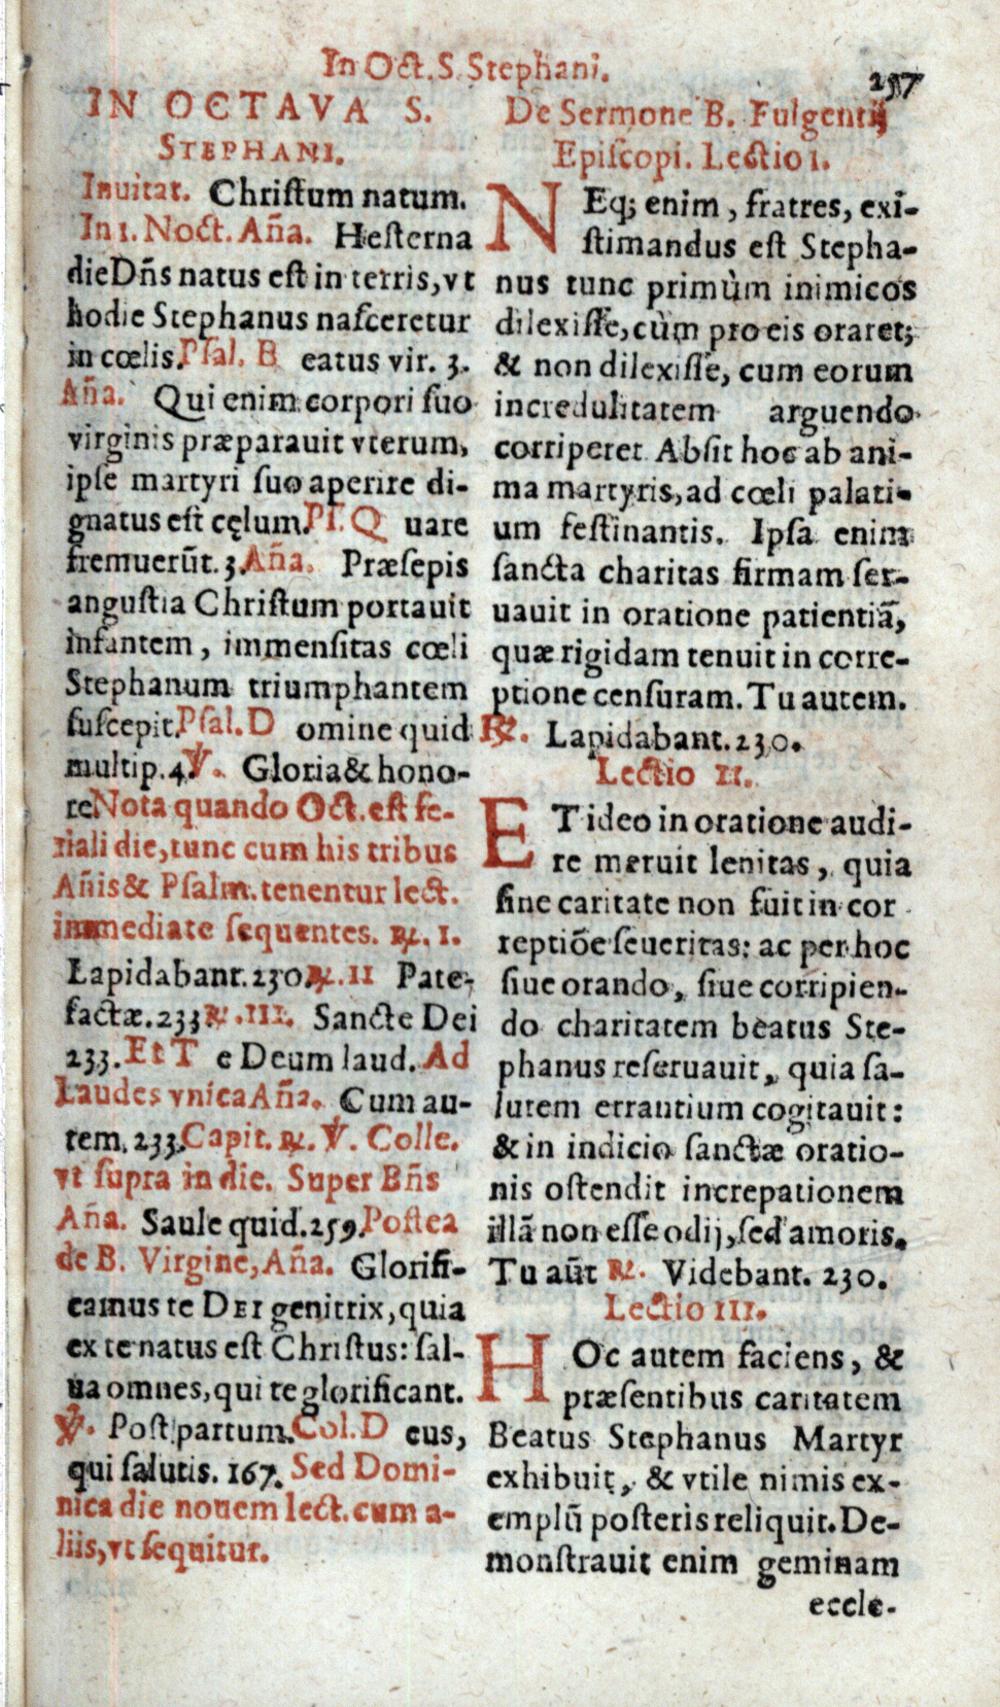 In Oct. S. Stephani.
257
IN OCTAVA S.
STEPHANI.
Inuitat. Chriſtum natum.
In 1. Noct. Aña. Heſterna
die Dñs natus eſt in terris, vt
hodie Stephanus naſceretur
in cœlis. Pſal. B eatus vir. 3.
Aña. Qui enim corpori ſuo
virginis præparauit vterum,
ipſe martyri ſuo aperire di-
gnatus eſt cęlum. Pſ. Q uare
fremuerũt. 3. Aña. Præſepis
anguſtia Chriſtum portauit
infantem, immenſitas cœli
Stephanum triumphantem
ſuſcepit. Pſal. D omine quid
multip. 4. ℣. Gloria & hono-
re Nota quando Oct. eſt fe-
riali die, tunc cum his tribus
Añis & Pſalm. tenentur lect.
immediate ſequentes. ℟. I.
Lapidabant. 230. ℟. II Pate-
factæ. 233 ℟. III. Sancte Dei
233. Et T e Deum laud. Ad
Laudes vnica Aña. Cum au-
tem. 233. Capit. ℟. ℣. Colle.
vt ſupra in die. Super Bñs
Aña. Saule quid. 259. Poſtea
de B. Virgine, Aña. Glorifi-
camus te DEI genitrix, quia
ex te natus eſt Chriſtus: ſal-
ua omnes, qui te glorificant.
℣. Poſt partum. Col. D eus,
qui ſalutis. 167. Sed Domi-
nica die nouem lect. cum a-
liis, vt ſequitur.
De Sermone B. Fulgentij
Epiſcopi. Lectio 1.
NEq; enim, fratres, exi-
ſtimandus eſt Stepha-
nus tunc primùm inimicos
dilexiſſe, cùm pro eis oraret;
& non dilexiſſe, cum eorum
incredulitatem arguendo
corriperet. Abſit hoc ab ani-
ma martyris, ad cœli palati-
um feſtinantis. Ipſa enim
ſancta charitas firmam ſer-
uauit in oratione patientiã,
quæ rigidam tenuit in corre-
ptione cenſuram. Tu autem.
℟. Lapidabant. 230.
Lectio II.
ET ideo in oratione audi-
re meruit lenitas, quia
ſine caritate non fuit in cor
reptiõe ſeueritas: ac per hoc
ſiue orando, ſiue corripien-
do charitatem beatus Ste-
phanus reſeruauit, quia ſa-
lutem errantium cogitauit:
& in indicio ſanctæ oratio-
nis oſtendit increpationem
illã non eſſe odij, ſed amoris.
Tu aũt ℟. Videbant. 230.
Lectio III.
HOc autem faciens, &
præſentibus caritatem
Beatus Stephanus Martyr
exhibuit, & vtile nimis ex-
emplũ poſteris reliquit. De-
monſtrauit enim geminam
eccle-